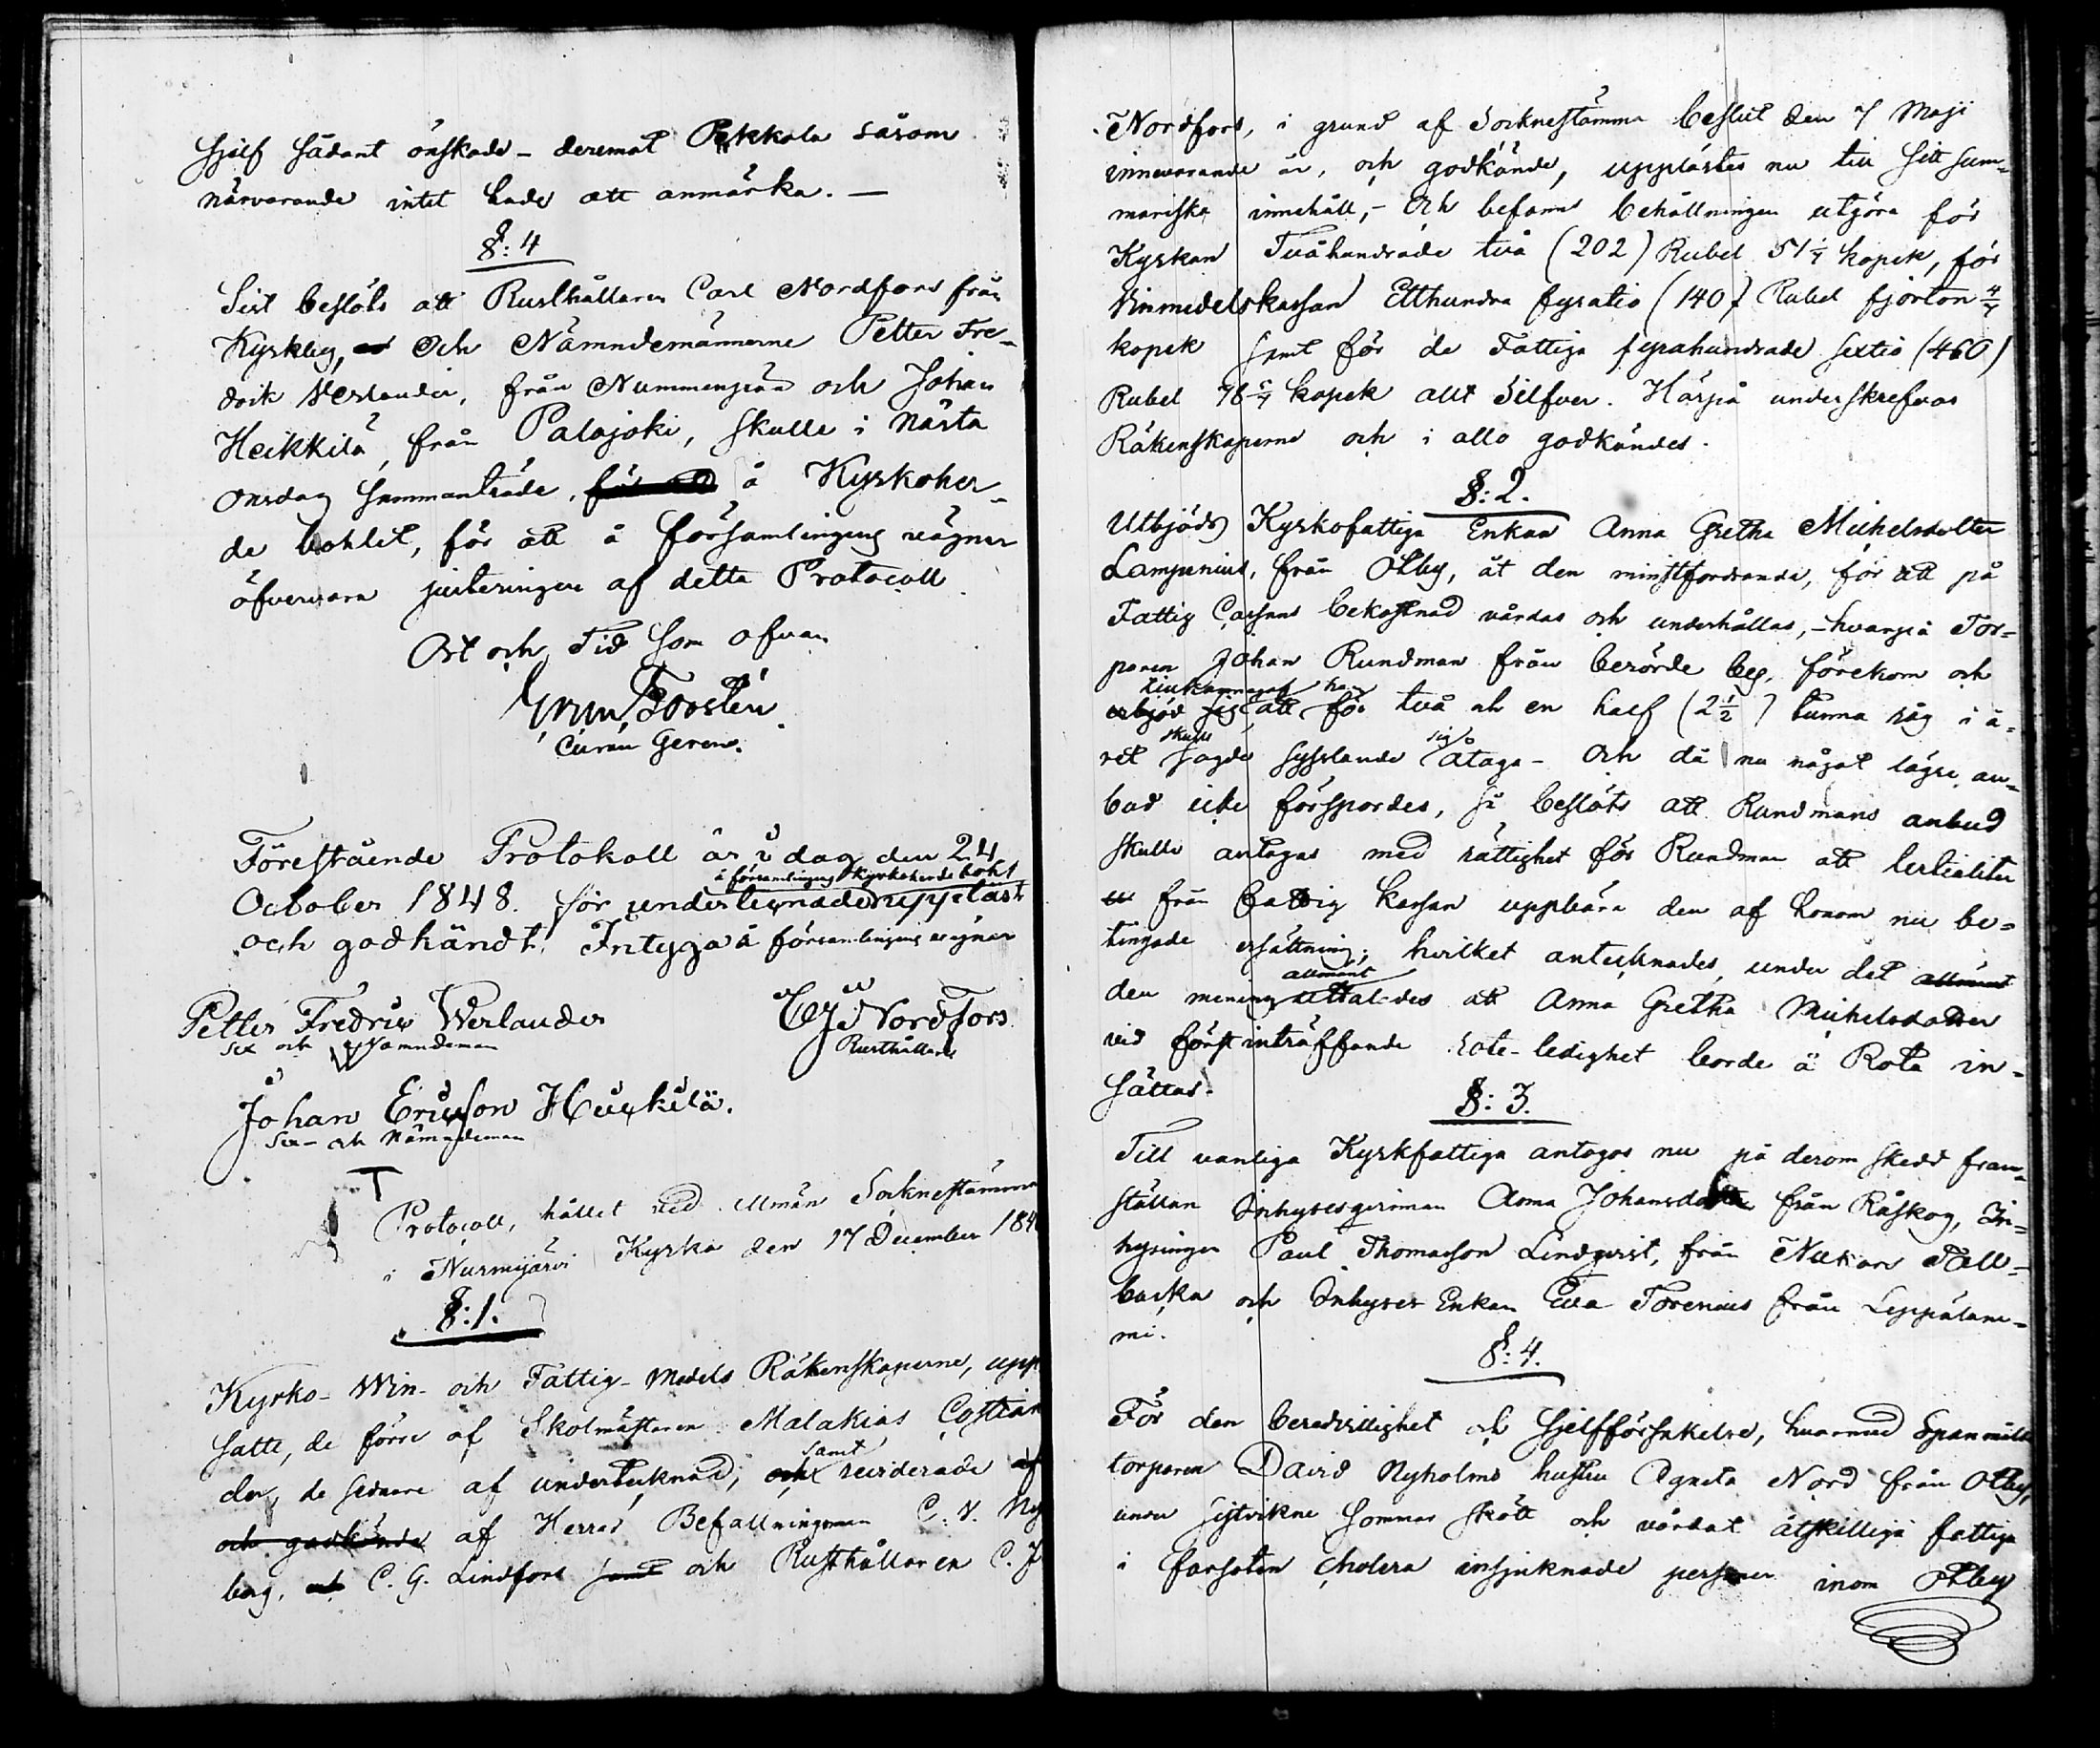 sjelf sådant önskade - deremot Pekkala såsom
närvarande intet hade att anmärka. —
§: 4
Sist beslöts att Rusthållaren Carl Nordfors från
Kyrkby, och Nämndemännerne Petter Fre-
drik Verlander, från Nummenpää och Johan
Heikkilä, från Palojoki, skulle i nästa
onsdag sammanträde, å Kyrkoher-
de bohlet, för att å församlingens vägnar
öfvervara justeringen af detta Protocoll.
Ort och Tid som ofvan
Forstén
Curam Gerens.
Förestående Protokoll är i dag den 24
å församlingens Kyrkoherde bohl
October 1848. för undertecnade uppläst
och godkändt. Intyga å församlingens vägnar
Petter Fredric Werlander
Sex och Nämndeman
CJ Nordfors
Rusthållare
Johan Ericsson Heickilä.
Sex- och Nämndeman
Protocoll, hållet vid allmän Socknestämma
i Nurmijärvi Kyrka den 17 December 184
§: 1.
Kyrko- Win- och Fattig-medels Räkenskaperne, upp
satte, de förre af Skolmästaren Malakias Costian
der, de sednare af undertecknad, samt reviderade
och godkände af Herrar Befallningsman C. V. Ny
berg, C. G. Lindfors samt och Rusthållaren C. J
Nordfors, i grund af Socknestämmo beslut den 7 Maji
innevarande år, och godkände, upplästes nu till sitt sum-
mariska innehåll, - och befanns behållningen utgöra för
Kyrkan Tvåhundrade två (202) Rubel 51 1/7 kopek, för
Vinmedelskassan Etthundra fyratio (140) Rubel fjorton 4/7
kopek samt för de Fattiga fyrahundrade sextio (460)
Rubel 78 5/7 kopek allt Silfver. Härpå underskrefvos
Räkenskaperne och i allo godkändes.
§: 2.
Utbjöds Kyrkofattiga Enkan Anna Gretha Michelsdotter
Lampenius, från Otby, åt den minstfordrande, för att på
Fattig Cassans bekostnad vårdas och underhållas, - hvarpå Tor-
paren Johan Rundman från berörde by, förekom och
tillkännagaf han
erbjöd sig att för två och en half (2 1/2) tunna råg i å-
skulle sig
ret sagde sysslande åtaga - Och då nu något lägre an-
bud icke förspordes, så beslöts att Rundmans anbud
skulle antagas med rättighet för Rundman att tertialiter
från Fattig kassan uppbära den af honom nu be-
tingade ersättning; hvilket antecknades, under det allmänt
allmänt
den mening uttalades att Anna Gretha Michelsdotter
vid först inträffande rote-ledighet borde å Rota in-
sättas.
§: 3.
Till vanliga Kyrkfattiga antogos nu på derom skedd fram-
ställan Inhysespigan Anna Johansdotter från Råskog, In-
hysingen Paul Thomasson Lindqvist, från Nukari Tall-
backa och Inhyses Enkan Eva Torenius från Leppälam-
mi.
§: 4.
För den beredvillighet och sjelfförsakelse, hvarmed Spanmåls
torparen David Nyholms hustru Agneta Nord från Otby,
under sistvikne sommar skött och vårdat åtskilliga fattiga
i farsoten Cholera insjuknade personer inom Otby